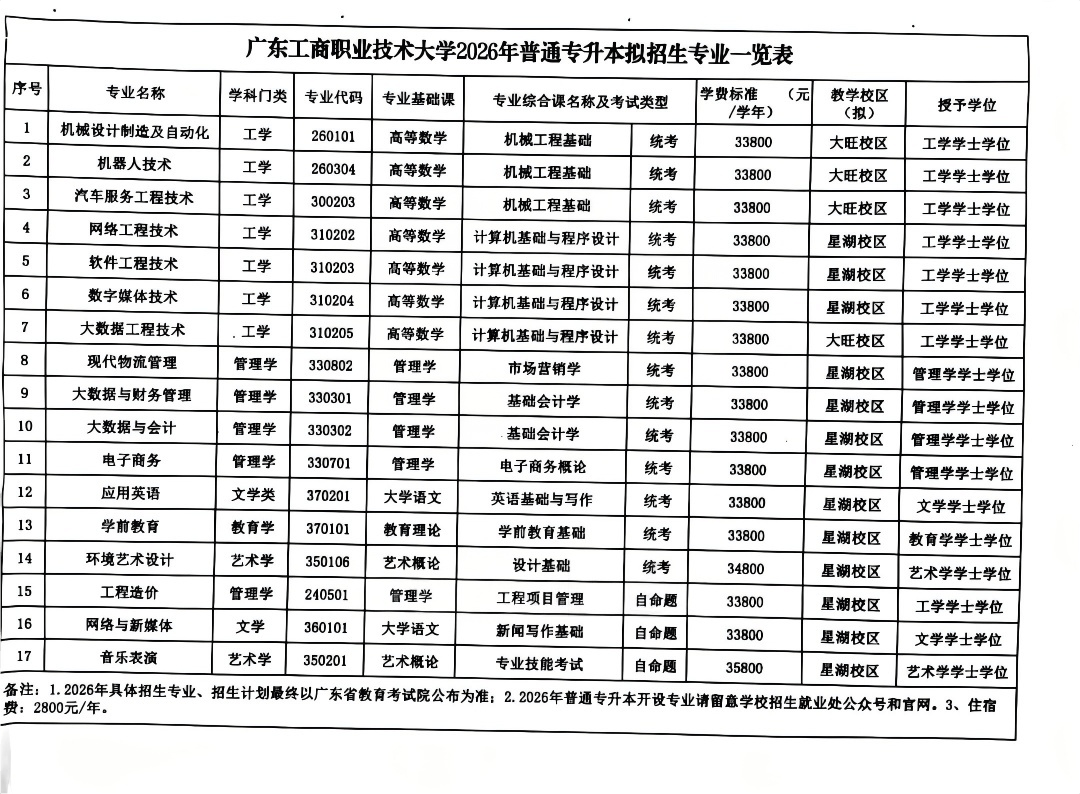 广东工商职业技术大学2026年普通专升本拟招生专业一览表
序号 专业名称 学科门类 专业代码 专业基础课 专业综合课名称及考试类型 学费标准 （元/学年） 教学校区（拟） 授予学位
1 机械设计制造及自动化 工学 260101 高等数学 机械工程基础 统考 33800 大旺校区 工学学士学位
2 机器人技术 工学 260304 高等数学 机械工程基础 统考 33800 大旺校区 工学学士学位
3 汽车服务工程技术 工学 300203 高等数学 机械工程基础 统考 33800 大旺校区 工学学士学位
4 网络工程技术 工学 310202 高等数学 计算机基础与程序设计 统考 33800 星湖校区 工学学士学位
5 软件工程技术 工学 310203 高等数学 计算机基础与程序设计 统考 33800 星湖校区 工学学士学位
6 数字媒体技术 工学 310204 高等数学 计算机基础与程序设计 统考 33800 星湖校区 工学学士学位
7 大数据工程技术 工学 310205 高等数学 计算机基础与程序设计 统考 33800 大旺校区 工学学士学位
8 现代物流管理 管理学 330802 管理学 市场营销学 统考 33800 星湖校区 管理学学士学位
9 大数据与财务管理 管理学 330301 管理学 基础会计学 统考 33800 星湖校区 管理学学士学位
10 大数据与会计 管理学 330302 管理学 基础会计学 统考 33800 星湖校区 管理学学士学位
11 电子商务 管理学 330701 管理学 电子商务概论 统考 33800 星湖校区 管理学学士学位
12 应用英语 文学类 370201 大学语文 英语基础与写作 统考 33800 星湖校区 文学学士学位
13 学前教育 教育学 370101 教育理论 学前教育基础 统考 33800 星湖校区 教育学学士学位
14 环境艺术设计 艺术学 350106 艺术概论 设计基础 统考 34800 星湖校区 艺术学学士学位
15 工程造价 管理学 240501 管理学 工程项目管理 自命题 33800 星湖校区 工学学士学位
16 网络与新媒体 文学 360101 大学语文 新闻写作基础 自命题 33800 星湖校区 文学学士学位
17 音乐表演 艺术学 350201 艺术概论 专业技能考试 自命题 35800 星湖校区 艺术学学士学位
备注：1.2026年具体招生专业、招生计划最终以广东省教育考试院公布为准；2.2026年普通专升本开设专业请留意学校招生就业处公众号和官网。3、住宿
费：2800元/年。